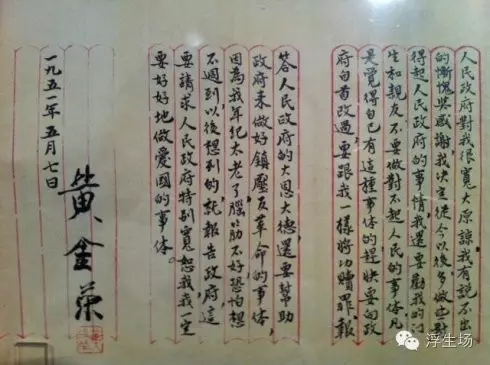 人民政府對我很寬大原諒我有說不出
的慚愧與感謝我決定從今以後多做些對
得起人民政府的事情我還要勸我的門
生和親友不要做對不起人民的事体凡
是覺得自己有這種事体的趕快要向政
府自首改過要跟我一樣將功贖罪報
答人民政府的大恩大德還要幫助
政府來做好鎮壓反革命的事体，
因為我年紀太老了腦筋不好恐怕想
不週到以後想到的就報告政府這
要請求人民政府特別寬恕我我一定
要好好地做愛國的事体。
一九五一年五月七日
黃金榮
浮生场